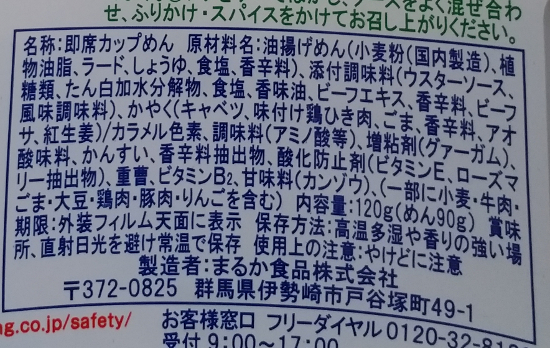 をよく混ぜ合わ
せ、ふりかけ・スパイスをかけてお召し上がりください。
名称:即席カップめん 原材料名:油揚げめん(小麦粉(国内製造)、植
物油脂、ラード、しょうゆ、食塩、香辛料)、添付調味料(ウスターソース、
糖類、たん白加水分解物、食塩、香味油、ビーフエキス、香辛料、ビーフ
風味調味料)、かやく(キャベツ、味付け鶏ひき肉、ごま、香辛料、アオ
サ、紅生姜)/カラメル色素、調味料(アミノ酸等)、増粘剤(グァーガム)、
酸味料、かんすい、香辛料抽出物、酸化防止剤(ビタミンE、ローズマ
リー抽出物)、重曹、ビタミンB₂、甘味料(カンゾウ)、(一部に小麦・牛肉・
ごま・大豆・鶏肉・豚肉・りんごを含む) 内容量:120g(めん90g) 賞味
期限:外装フィルム天面に表示 保存方法:高温多湿や香りの強い場
所、直射日光を避け常温で保存 使用上の注意:やけどに注意
製造者:まるか食品株式会社
〒372-0825 群馬県伊勢崎市戸谷塚町49-1
ng.co.jp/safety/ お客様窓口 フリーダイヤル 0120-32-81
受付 9:00~17:00